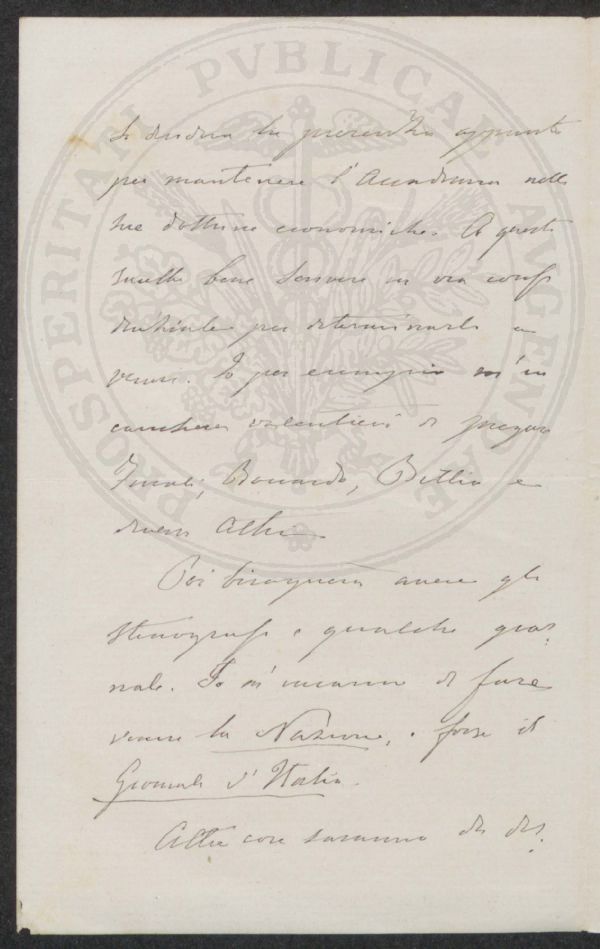 si desidera la presenza appunto
per mantenere l'Accademia nelle
sue dottrine economiche. A questi
sarebbe bene scrivere in via confi
denziale per determinarli a
venire. Io per esempio m'in
caricherei volentieri di pregare
Boccardo, e
diversi altri.
Poi bisognerà avere gli
stenografi e qualche gior
nale. Io m'incarico di fare
venire la Nazione, e forse il
Giornale d'Italia.
Altre cose saranno da
PROSPERITATI PVBLICAE AVGENDAE